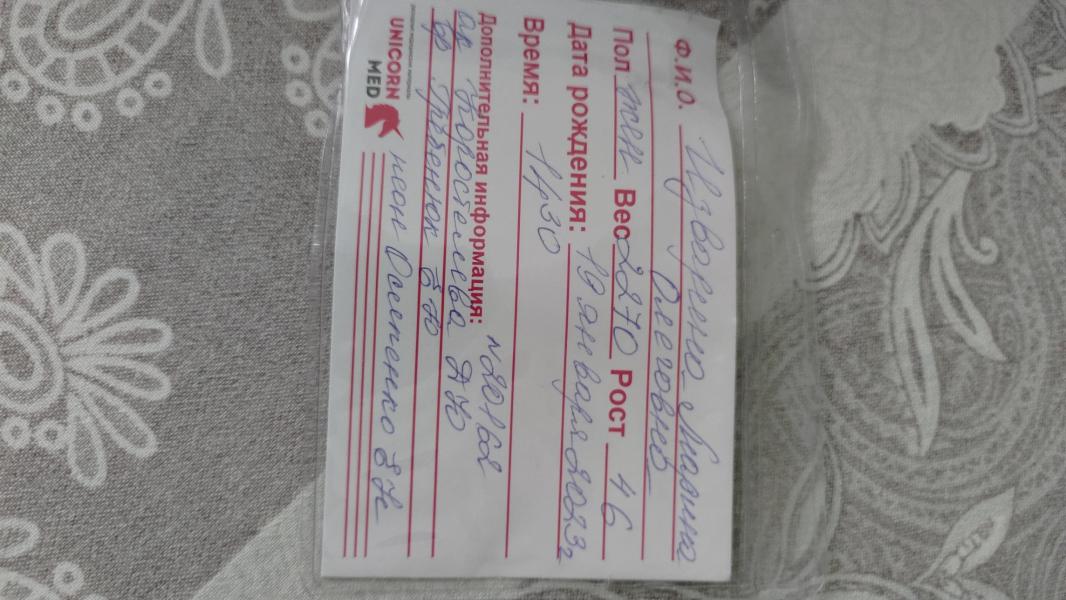 Ф.И.О. Марина
Олеговна
Пол жен Вес 2270 Рост 46
Дата рождения: 19 января 2023г
Время: 1430
Дополнительная информация: №20168
ар Коростелева
ер Гребенюк
неон Осипенко
UNICORN
MED